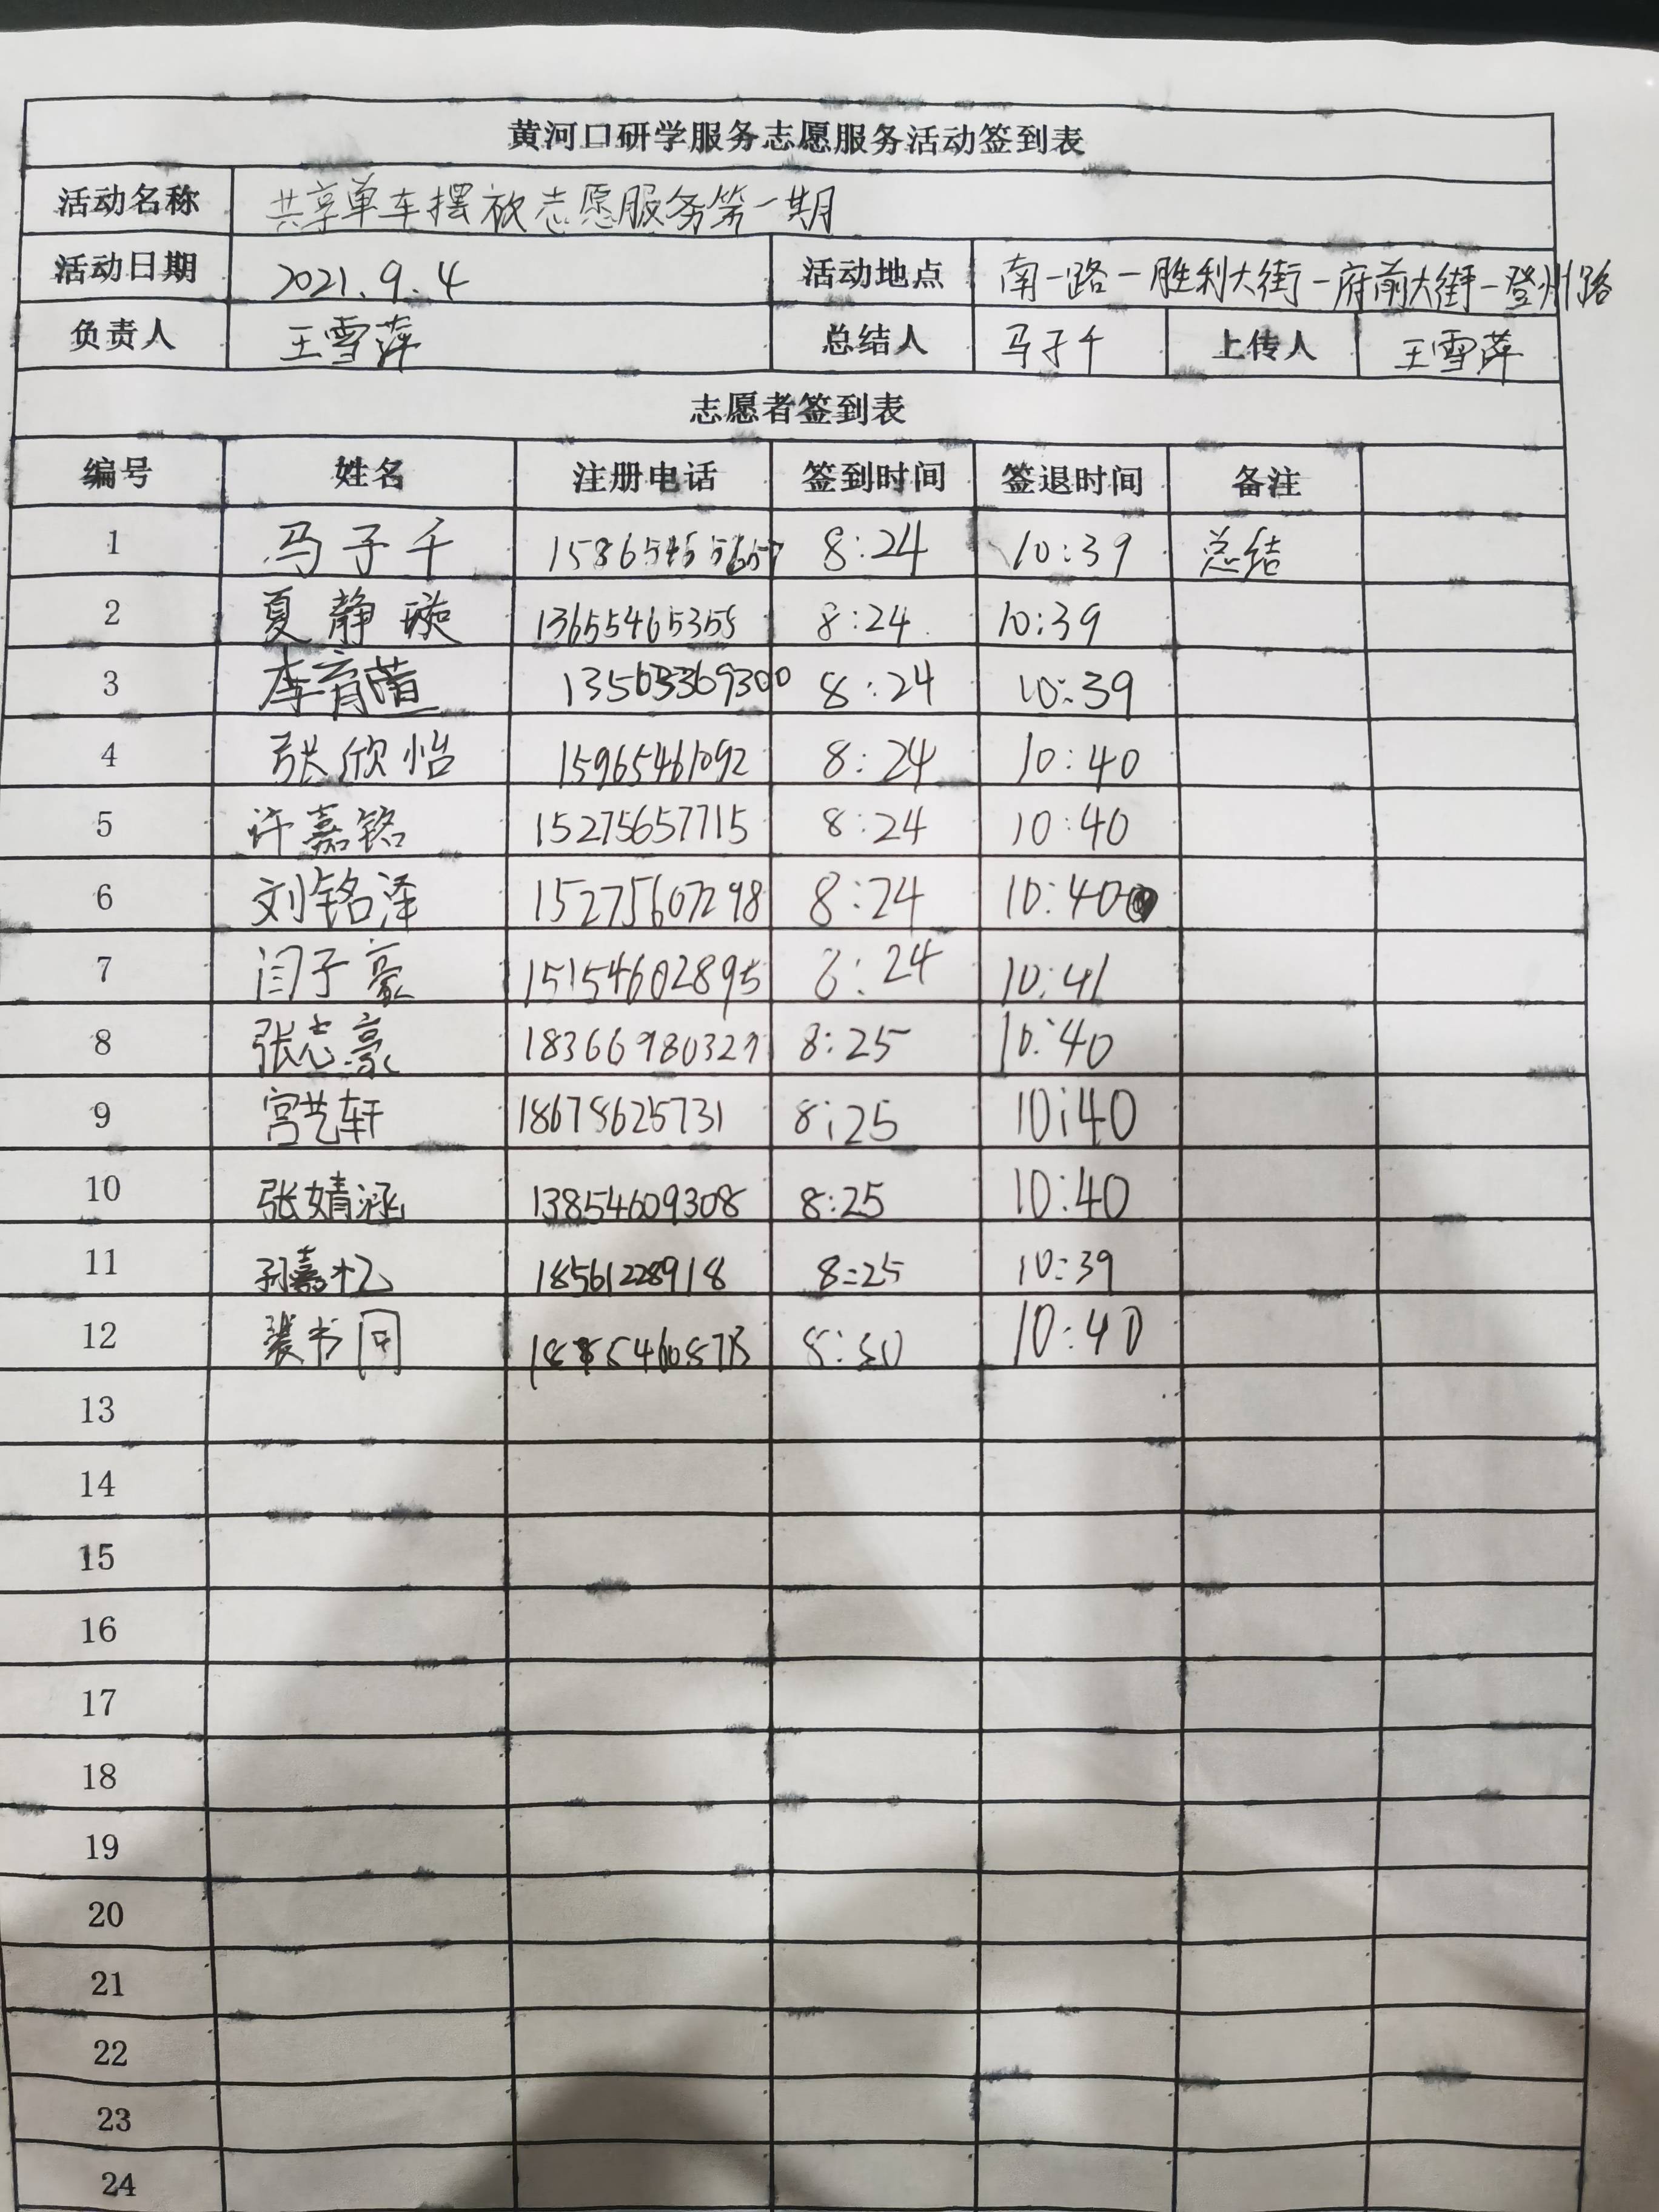 黄河口研学服务志愿服务活动签到表
活动名称 共享单车摆放志愿服务第一期
活动日期 2021.9.4 活动地点 南一路-胜利大街-府前大街-登州路
负责人 王雪萍 总结人 马子千 上传人 王雪萍
志愿者签到表
编号 姓名 注册电话 签到时间 签退时间 备注
1 马子千 8:24 10:39 总结
2 夏静璇 13655465355 8:24 10:39
3 李育萱 13563369300 8:24 10:39
4 张欣怡 15965461092 8:24 10:40
5 许嘉铭 15275657715 8:24 10:40
6 刘铭泽 15275607298 8:24 10:40
7 闫子豪 15154602895 8:24 10:41
8 张志豪 18366980329 8:25 10:40
9 宫艺轩 18678625731 8:25 10:40
10 张婧涵 13854609308 8:25 10:40
11 孙嘉忆 18561228918 8:25 10:39
12 裴书同 8:30 10:40
13
14
15
16
17
18
19
20
21
22
23
24